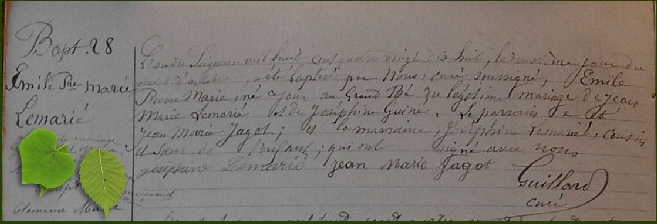 Bapt. 28
Emile Pre Marie
Lemarié
L'an du Seigneur mil huit cent quatre vingt dix huit, le deuxième jour du
mois d'octobre, a été baptisé par Nous, curé soussigné, Emile
Pierre Marie, né ce jour au Grand du légitime mariage de Jean
Marie Lemarié et de Joséphine Guine. Le parrain a été
Jean Marie Jagot; et la marraine, Joséphine Lemarié, cousin
et sœur de l'enfant; qui ont signé avec nous
Joséphine Lemarié Jean Marie Jagot
Guillard
curé